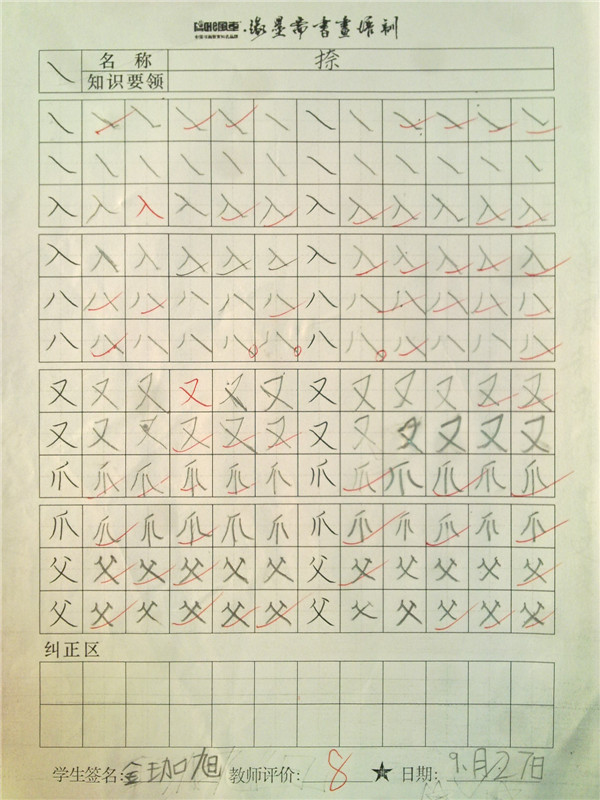 缘墨斋書畫培训
㇏ 名称 捺
知识要领
㇏ ㇏ ㇏ ㇏ ㇏ ㇏ ㇏ ㇏ ㇏ ㇏ ㇏ ㇏
㇏ ㇏ ㇏ ㇏ ㇏ ㇏ ㇏ ㇏ ㇏ ㇏ ㇏ ㇏
入 入 入 入 入 入 入 入 入 入 入 入
入 入 入 入 入 入 入 入 入 入 入 入
八 八 八 八 八 八 八 八 八 八 八 八
八 八 八 八 八 八 八 八 八 八 八 八
又 又 又 又 又 又 又 又 又 又 又 又
又 又 又 又 又 又 又 又 又 又 又 又
爪 爪 爪 爪 爪 爪 爪 爪 爪 爪 爪 爪
爪 爪 爪 爪 爪 爪 爪 爪 爪 爪 爪 爪
父 父 父 父 父 父 父 父 父 父 父 父
父 父 父 父 父 父 父 父 父 父 父 父
纠正区
学生签名:金珈旭 教师评价: 8 ★ 日期: 9月27日